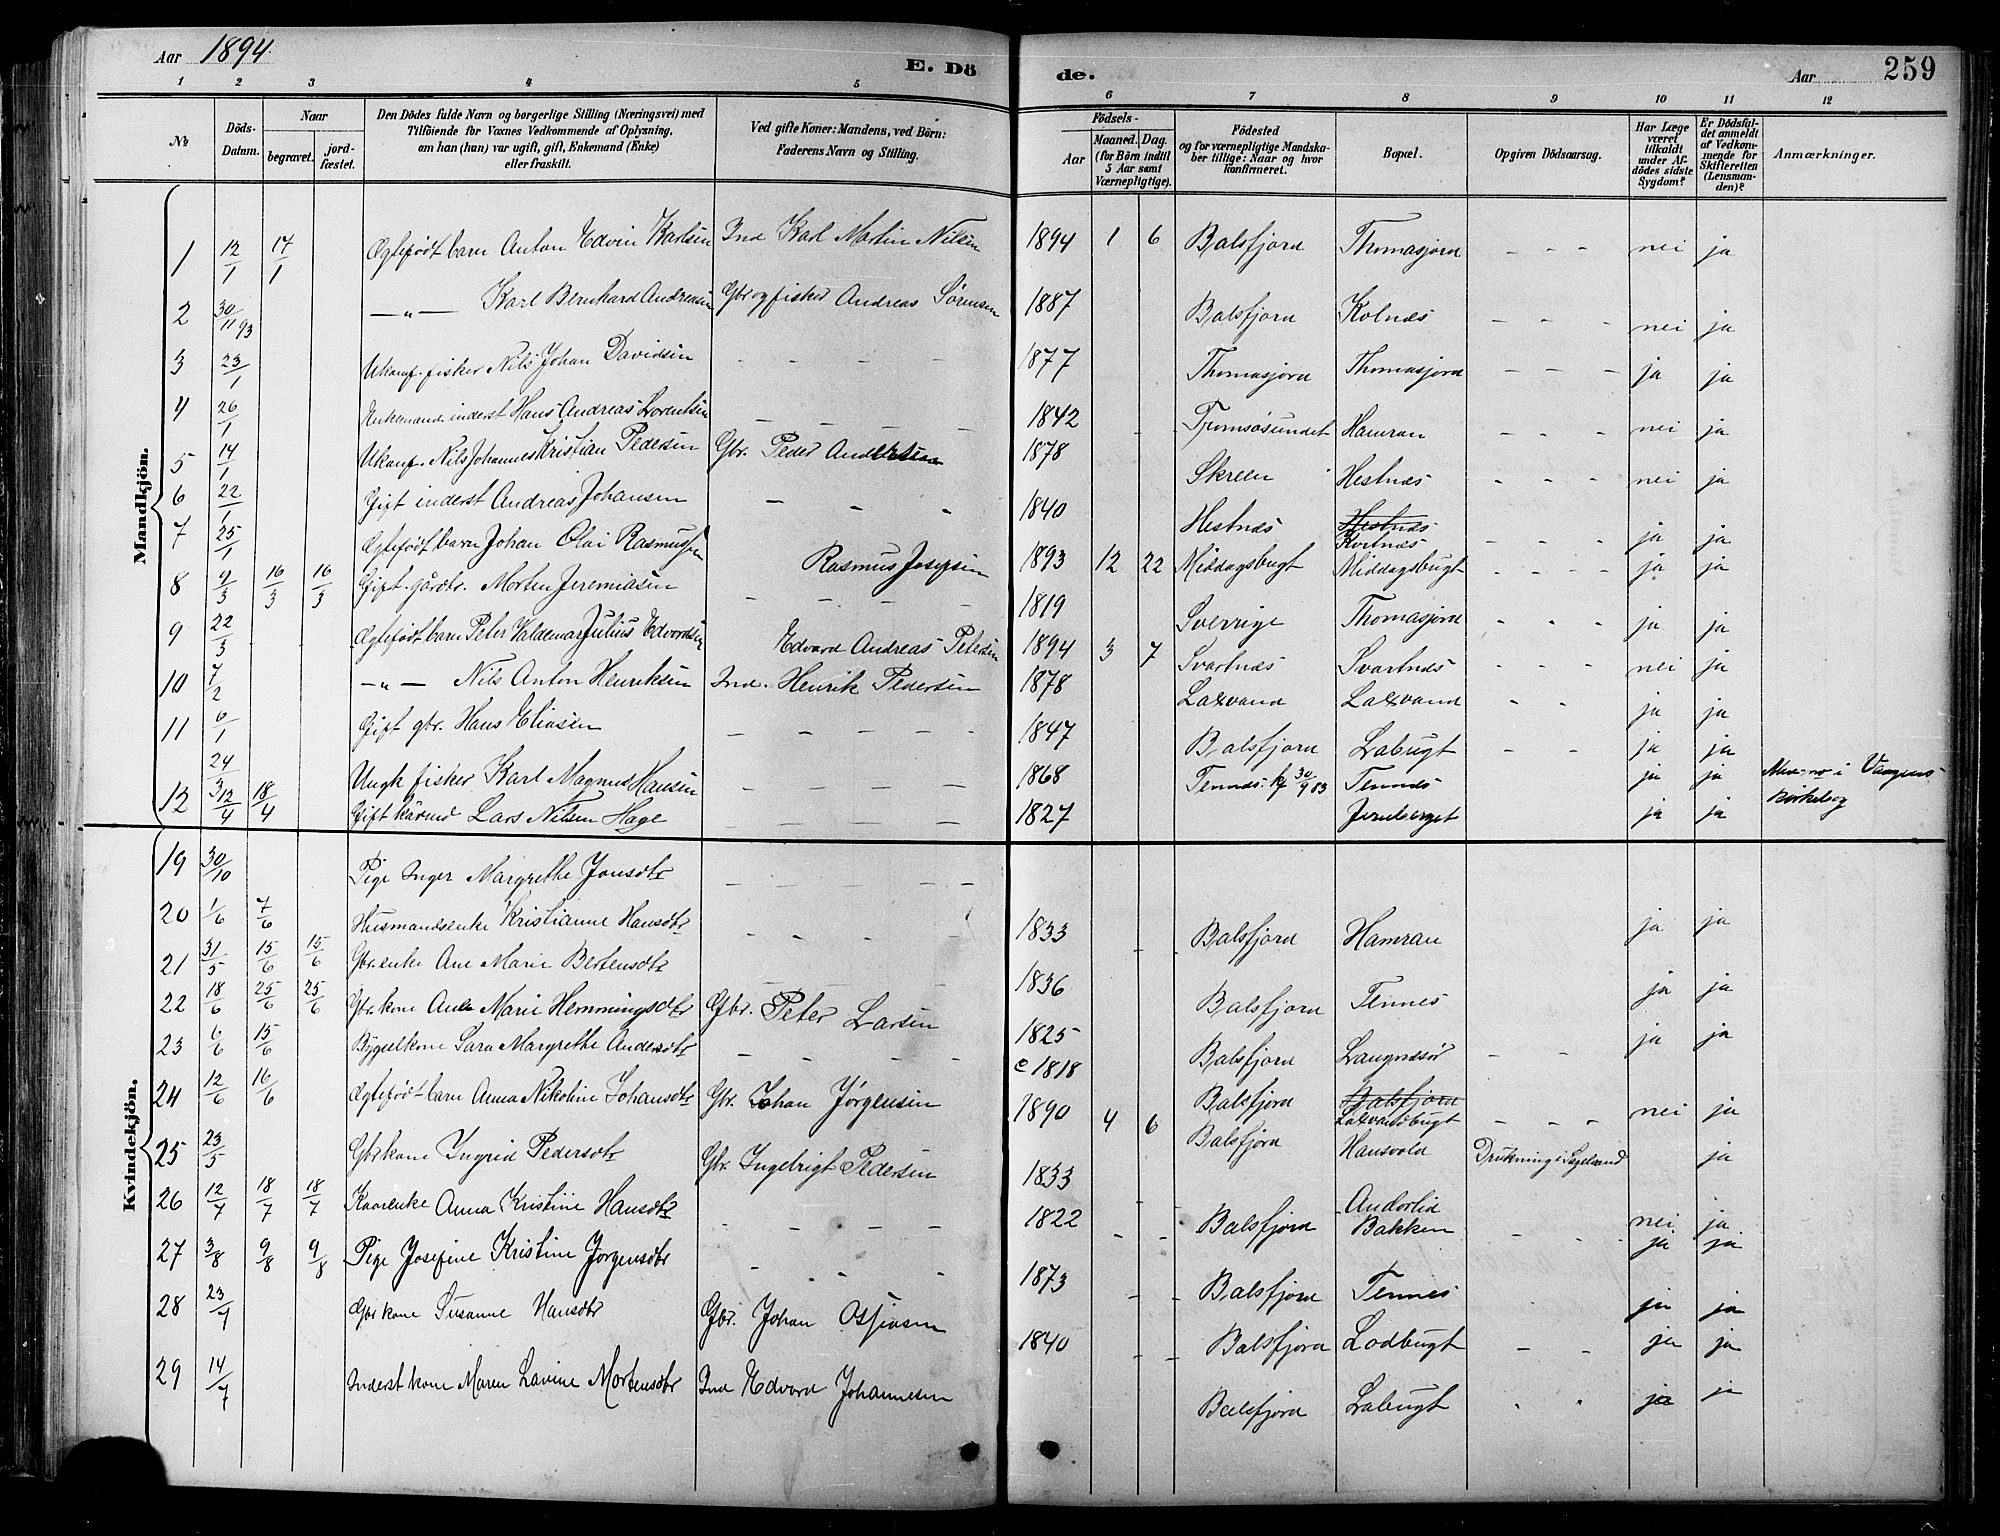 Aar 1894. E. Dö
de. Aar 259
1 2 3 4 5 6 7 8 9 10 11 12
№ Döds-Datum. Naar begravet. jordfæstet. Den Dödes fulde Navn og borgerlige Stilling (Næringsvei) med Tilföiende for Voxnes Vedkommende af Oplysning, om han (hun) var ugift, gift, Enkemand (Enke) eller fraskilt. Ved gifte Koner: Mandens, ved Börn: Faderens Navn og Stilling. Födsels- Aar Maaned. Dag. (for Börn indtil 5 Aar samt Værnepligtige). Födested og for værnepligtige Mandskaber tillige: Naar og hvor konfirmeret. Bopæl. Opgiven Dödsaarsag. Har Læge været tilkaldt under Afdödes sidste Sygdom? Er Dödsfaldet anmeldt af Vedkommende for Skifteretten (Lensmanden)? Anmærkninger.
Mandkjön.
1 12/1 17/1 Ægtefödt barn Anton Edvin Karlsen Ind Karl Martin Nilsen 1894 1 6 Balsfjord Thomasjord - - - nei ja
2 30/11 93 —"— Karl Bernhard Andreasen Gbr og fisker Andreas Sørensen 1887 Balsfjord Kolnæs - - - nei ja
3 23/1 Ukonf. fisker Nils Johan Davidsen - - - - 1877 Thomasjord Thomasjord - - - ja ja
4 26/1 Enkemand inderst Hans Andreas Lorentsen - - - - 1842 Tromsøsundet Hamran - - - nei ja
5 14/1 Ukonf. Nils Johannes Kristian Pedersen Gbr. Peder Andersen 1878 Skreen Hestnæs - - - nei ja
6 22/1 Gift inderst Andreas Johansen - - - - 1840 Hestnæs Hestnæs Kvitnæs - - - ja ja
7 25/1 Ægtefödt barn Johan Olai Rasmussen Rasmus Josefsen 1893 12 22 Middagsbugt Middagsbugt - - - - ja ja
8 9/3 16/3 16/3 Gift gårdbr. Morten Jeremiasen - - - - 1819 Sverrige Thomasjord - - - ja ja
9 22/3 Ægtefödt barn Peter Valdemar Julius Edvardsen Edvard Andreas Petersen 1894 3 7 Svartnæs Svartnæs - - - nei ja
10 7/2 —"— Nils Anton Henriksen Ind. Henrik Pedersen 1878 Laxvand Laxvand - - ja ja
11 6/1 Gift gbr. Hans Eliasen - - - - - 1847 Balsfjord Labugt - - ja ja
24/3 Ungk fisker Karl Magnus Hansen - - - - - 1868 Tennes. kf 30/9 83 Tennes ja ja i Vangens
12 12/4 18/4 Gift kårmd Lars Nilsen Hage - - - - 1827 Jernberget ja ja kirkebog
Kvindekjön.
19 30/10 Pige Inger Margrethe Jonsdtr - - - - - -
20 1/6 7/6 Husmandsenke Kristianne Hansdtr - - - - 1833 Balsfjord Hamran ja ja
21 31/5 15/6 15/6 Gbr.enke Ane Marie Bertensdtr 1836 Balsfjord Tennes ja ja
22 18/6 25/6 25/6 Gbr kone Ane Marie Hemmingsdtr Gbr. Peter Larsen 1825 Balsfjord Langnesör - - ja ja
23 6/6 15/6 Bygselkone Sara Margrethe Andersdtr - - - - c 1818 Balsfjord Balsfjord Laxvandbugt
24 12/6 16/6 Ægtefödt barn Anna Nikoline Johansdtr Gbr. Johan Jørgensen 1890 4 6 Balsfjord Hansvold - - - nei ja
25 23/5 Gbr kone Ingrid Pedersdtr Gbr. Ingebrigt Pedersen 1833 Drukning i ja
26 12/7 18/7 18/7 Kaarenke Anna Kristine Hansdtr - - - - 1822 Balsfjord Andorlid Bakken - - nei ja ja ja
27 3/8 9/8 9/8 Pige Josefine Kristine Jørgensdtr - - - - 1873 Balsfjord Tennes ja ja
28 23/7 Gbr kone Susanne Hansdtr Gbr. Johan 1840 Balsfjord Lodbugt - - ja ja
29 14/7 Inderst kone Maren Lavine Mortensdtr Ind Edvard Johannesen Balsfjord Labugt - - ja ja